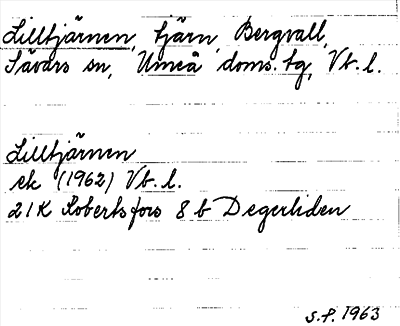 Lilltjärnen, tjärn, Bergvall,
Sävars sn, Umeå doms. tg, Vb. l.
Lilltjärnen
ek (1962) Vb. l.
21K Robertsfors 8 b Degerliden
S.F. 1963